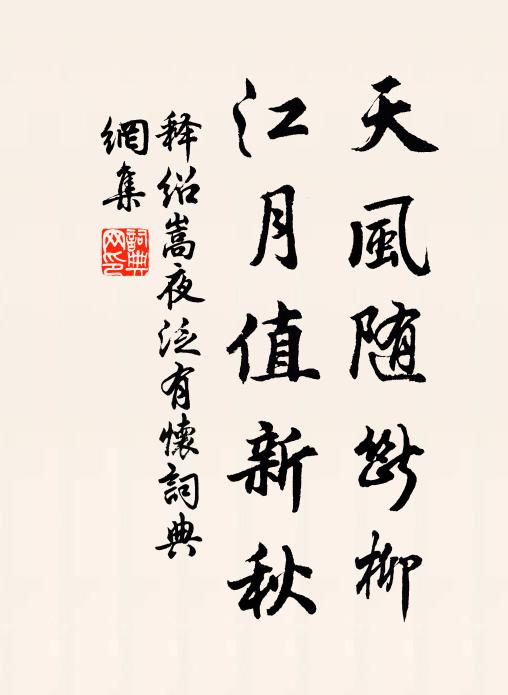 天風随斷柳
江月值新秋
释绍嵩夜泛有懷詞典
網集
詞典網印